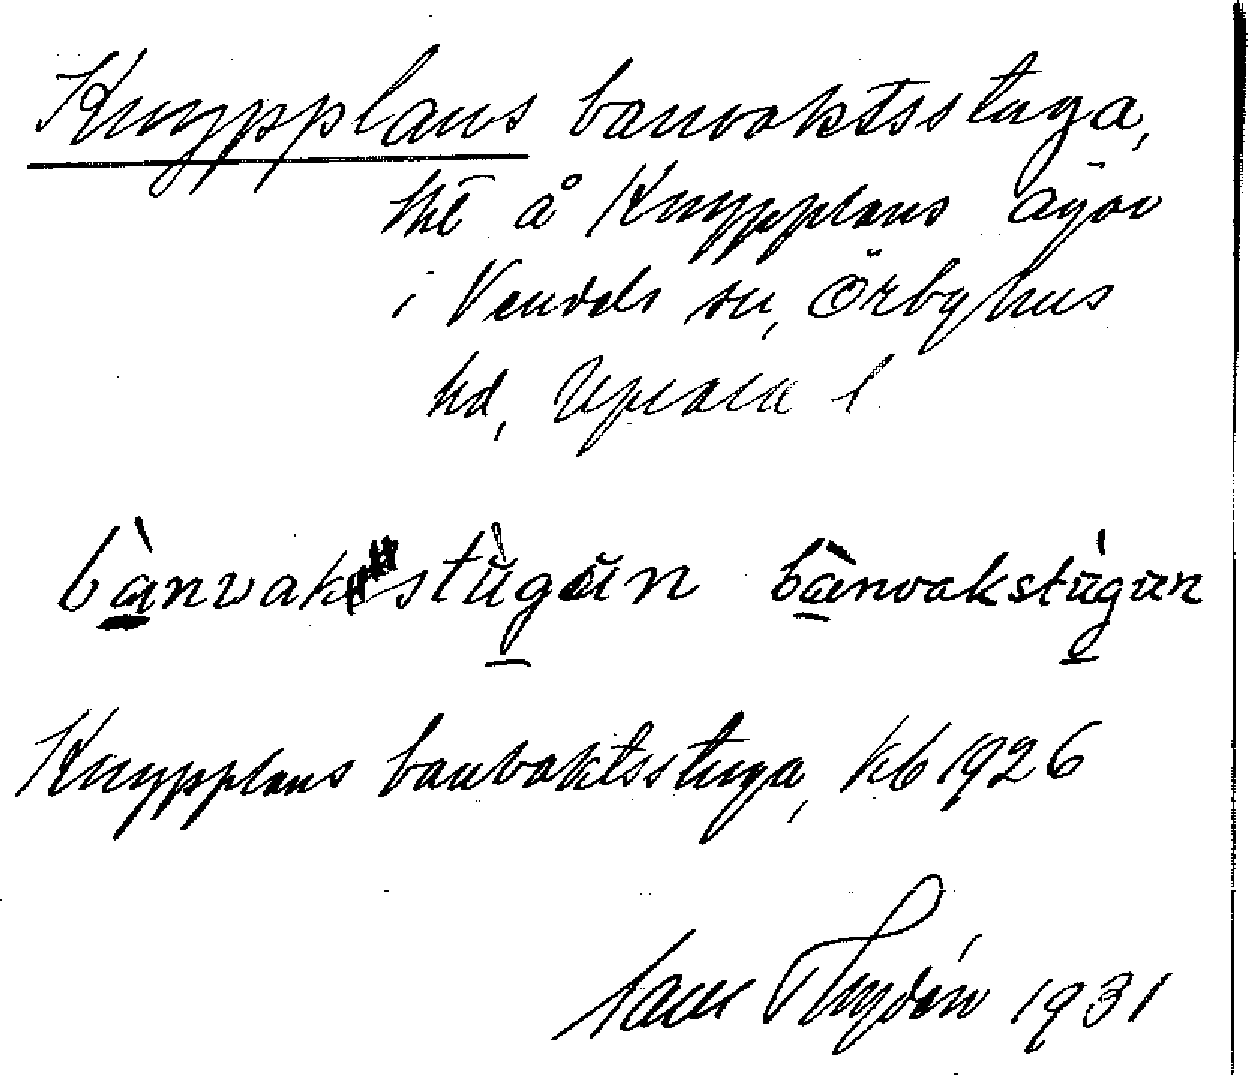 Knypplans banvaktsstuga,
lht å Knypplans ägor
i Vendels sn, Örbyhus
hd, Uppsala l
bànvakstùgun bànvakstùgun
Knypplans banvaktsstuga, kb 1926
Thydén 1931